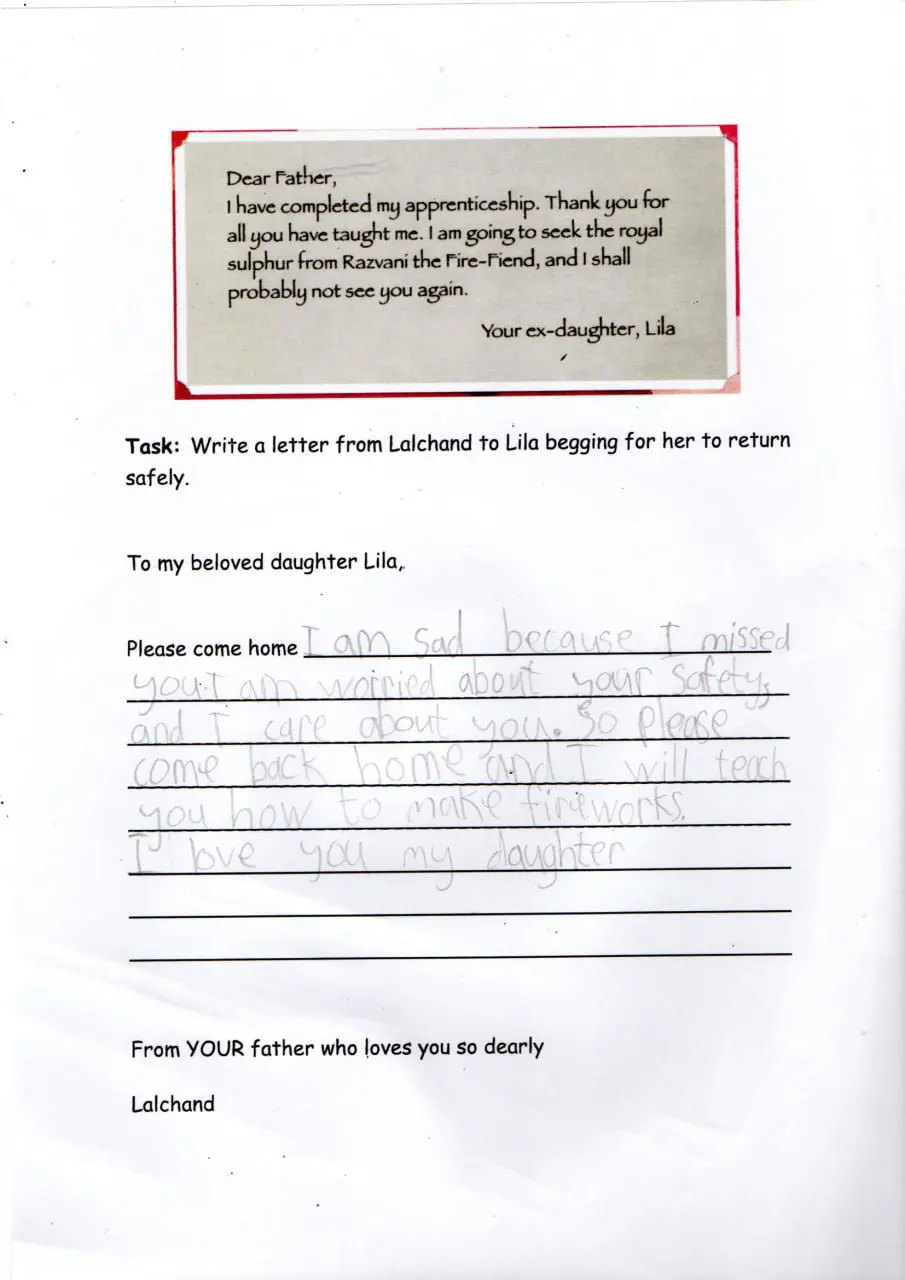 Dear Father,
I have completed my apprenticeship. Thank you for
all you have taught me. I am going to seek the royal
sulphur from Razvani the Fire-Fiend, and I shall
probably not see you again.
Your ex-daughter, Lila
Task: Write a letter from Lalchand to Lila begging for her to return
safely.
To my beloved daughter Lila,.
Please come home I am Sad because I missed
you. I am worried about your Safety,
and I care about you. So please
come back home and I will teach
you how to make fireworks.
I love you my daughter
From YOUR father who loves you so dearly
Lalchand